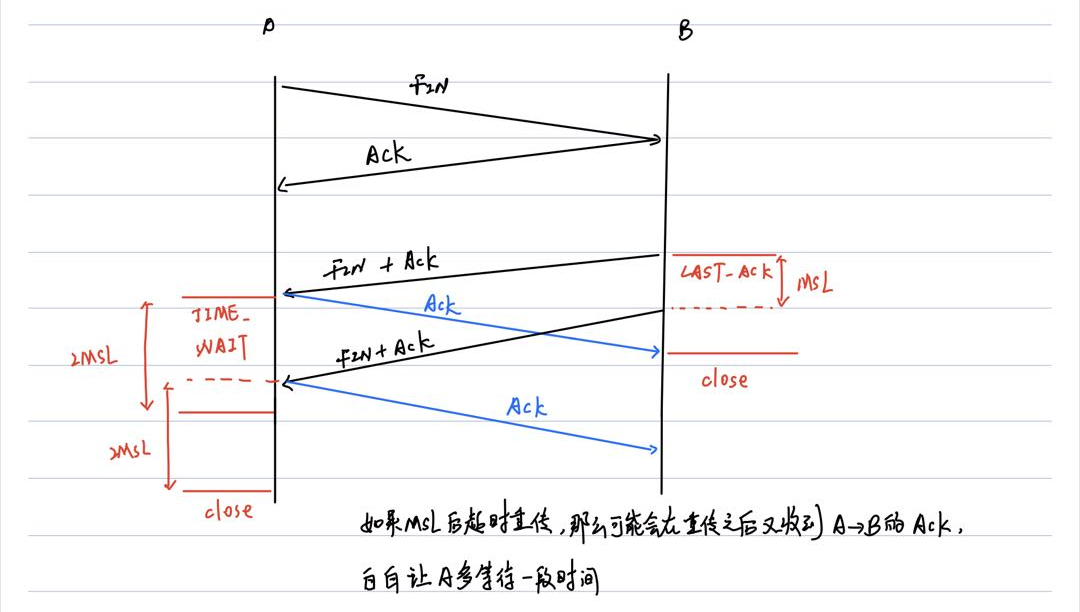 A
B
FIN
Ack
FIN + Ack
LAST_ACK
MSL
Ack
TIME_
WAIT
2MSL
FIN+Ack
close
Ack
2MSL
close
如果MSL后超时重传，那么可能会在重传之后又收到A→B的Ack，
白白让A多等待一段时间